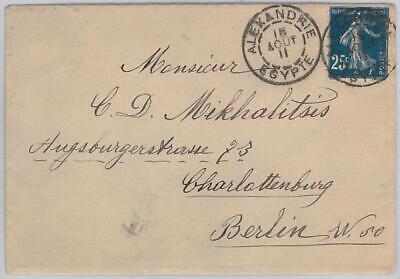 ALEXANDRIE
15
AOUT
11
EGYPTE
25c
POSTES
Monsieur
C. D. Mikhalitsis
Augsburgerstrasse 23
Charlottenburg
Berlin W. 50